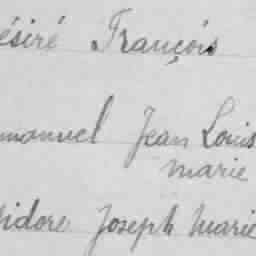 ésiré François
manuel Jean Louis
marie
sidore Joseph Marie